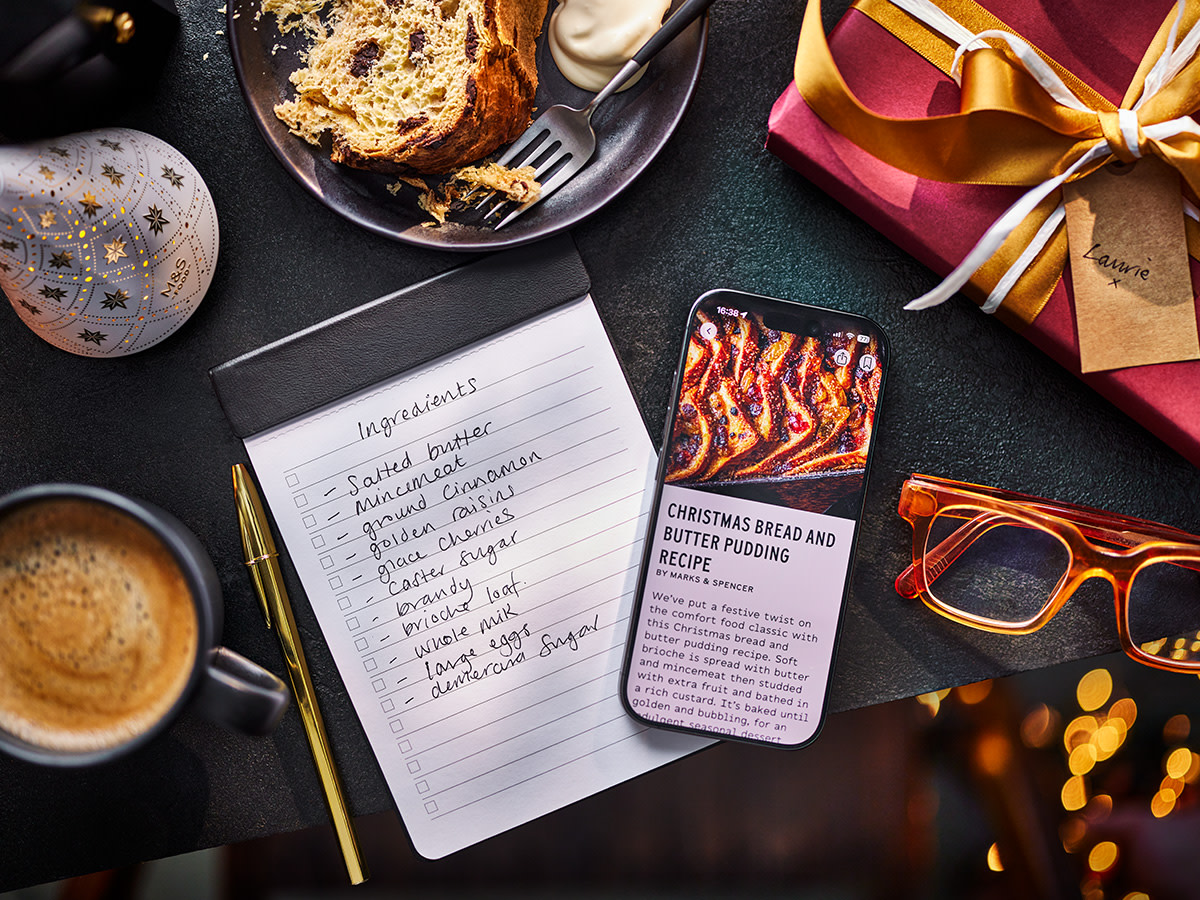 M&S
FOOD
Laurie
x
Ingredients
- Salted butter
- mincemeat
- ground cinnamon
- golden raisins
- glace cherries
- Caster sugar
- brandy
- brioche loaf.
- whole milk
- large eggs
- demerara sugar
16:38
77
CHRISTMAS BREAD AND
BUTTER PUDDING
RECIPE
BY MARKS & SPENCER
We've put a festive twist on
the comfort food classic with
this Christmas bread and
butter pudding recipe. Soft
brioche is spread with butter
and mincemeat then studded
with extra fruit and bathed in
a rich custard. It's baked until
golden and bubbling, for an
indulgent seasonal dessert